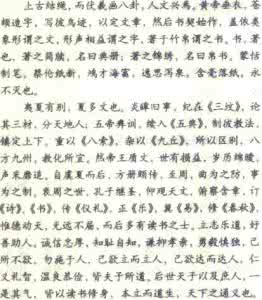 上古结绳，而伏羲画八卦，人文兴焉。黄帝垂衣，苍
颉造字，写彼鸟迹，以定文章，然后书契始作，盖依类
象形谓之文，形声相益谓之字，著于竹帛谓之书，书，著
也，著之简牍，名曰典册；著之锦绣，名曰帛书。蒙恬
制笔，蔡伦纸新，鸿才海富，逸思泻泉。含毫落纸，永
不灭也。
夷夏有别，夏多文也。炎皞旧事，纪在《三坟》，论
其三材，分天地人；五帝彝训，续入《五典》，制彼教法，
镇定上下。重以《八索》，杂以《九丘》，所以区别，八
方九州，教化所宜。然帝王质文，世有损益，岁历绵暧，
声采靡追。自虞夏而后，方册颇传，至周，曲为之防，事
为之制，衰周之世，孔子继圣，仰观天文，俯察含章，订
《诗》、《书》，传《仪礼》，正《乐》，翼《易》，修《春秋》，
惟德动天，无远不届，而后多有读书之士。立志乐道，好
善助人，诚信忠厚，知耻自知，谦抑孝亲，勇毅练独，己
所不欲，勿施于人，己欲立而立人，己欲达而达人，仁
义礼智，温良恭俭，皆夫子所道。后世天子以及庶人，一
是其气，皆以读书修身，本立而道生，天下之通义也。